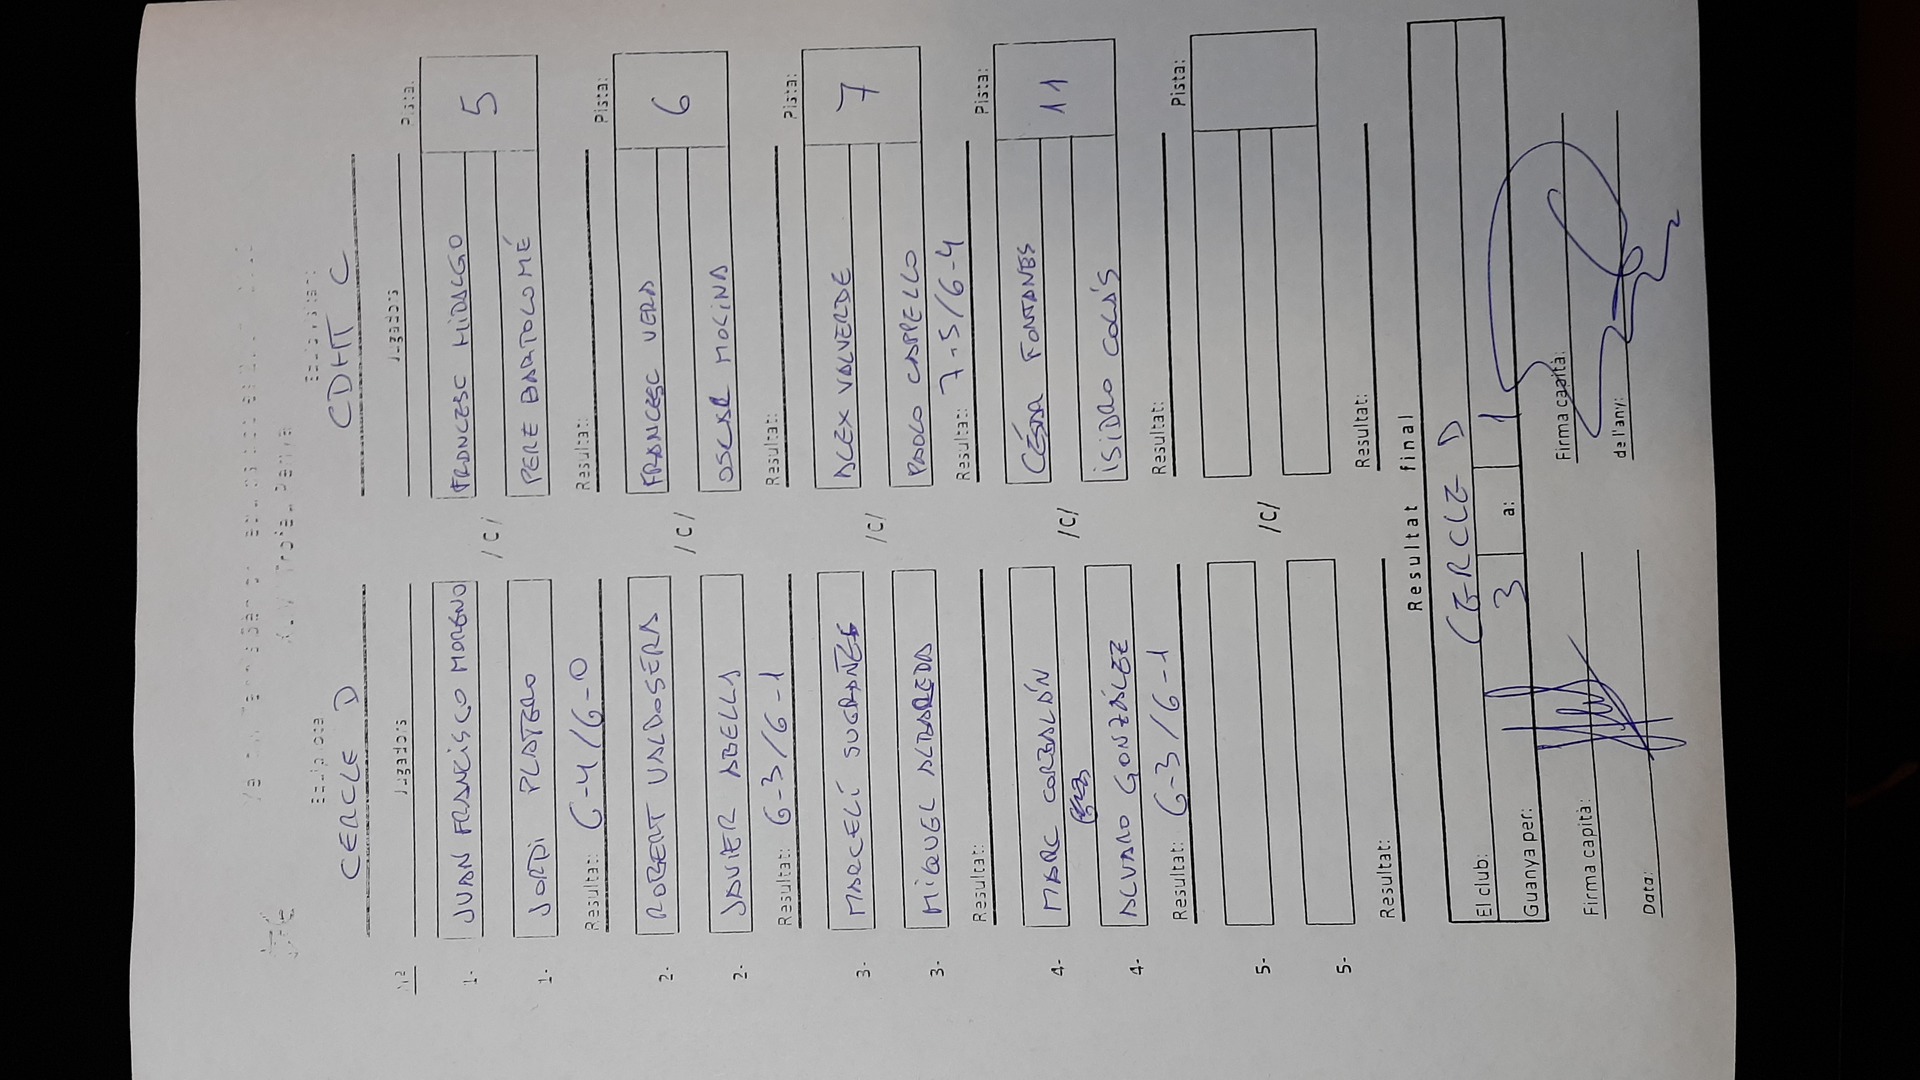 Equip local: Equip visitant:
CERCLE D CDHT C
Nº Jugadors Jugadors Pista:
1- JUAN FRANCISCO MORENO /C/ FRANCESC HIDALGO 5
1- JORDI PLATERO PERE BARTOLOMÉ
Resultat: 6-4/6-0 Resultat:
Pista:
2- ROBERT VALDOSERA /C/ FRANCESC VERA 6
2- JAVIER ABELLA OSCAR MOLINA
Resultat: 6-3/6-1 Resultat:
Pista:
3- MARCELÍ SUGRAÑES /C/ ALEX VALVERDE 7
3- MIQUEL ALBAREDA PAOLO CAPPELLO
Resultat: Resultat: 7-5/6-4
Pista:
4- MARC CORBALÁN /C/ CÉSAR FONTANES 11
4- ALVARO GONZÁLEZ ISIDRO COLÁS
Resultat: 6-3/6-1 Resultat:
Pista:
5- /C/
5-
Resultat: Resultat:
Resultat final
El club: CERCLE D
Guanya per: 3 a: 1
Firma capità: Firma capità:
Data: de l'any: